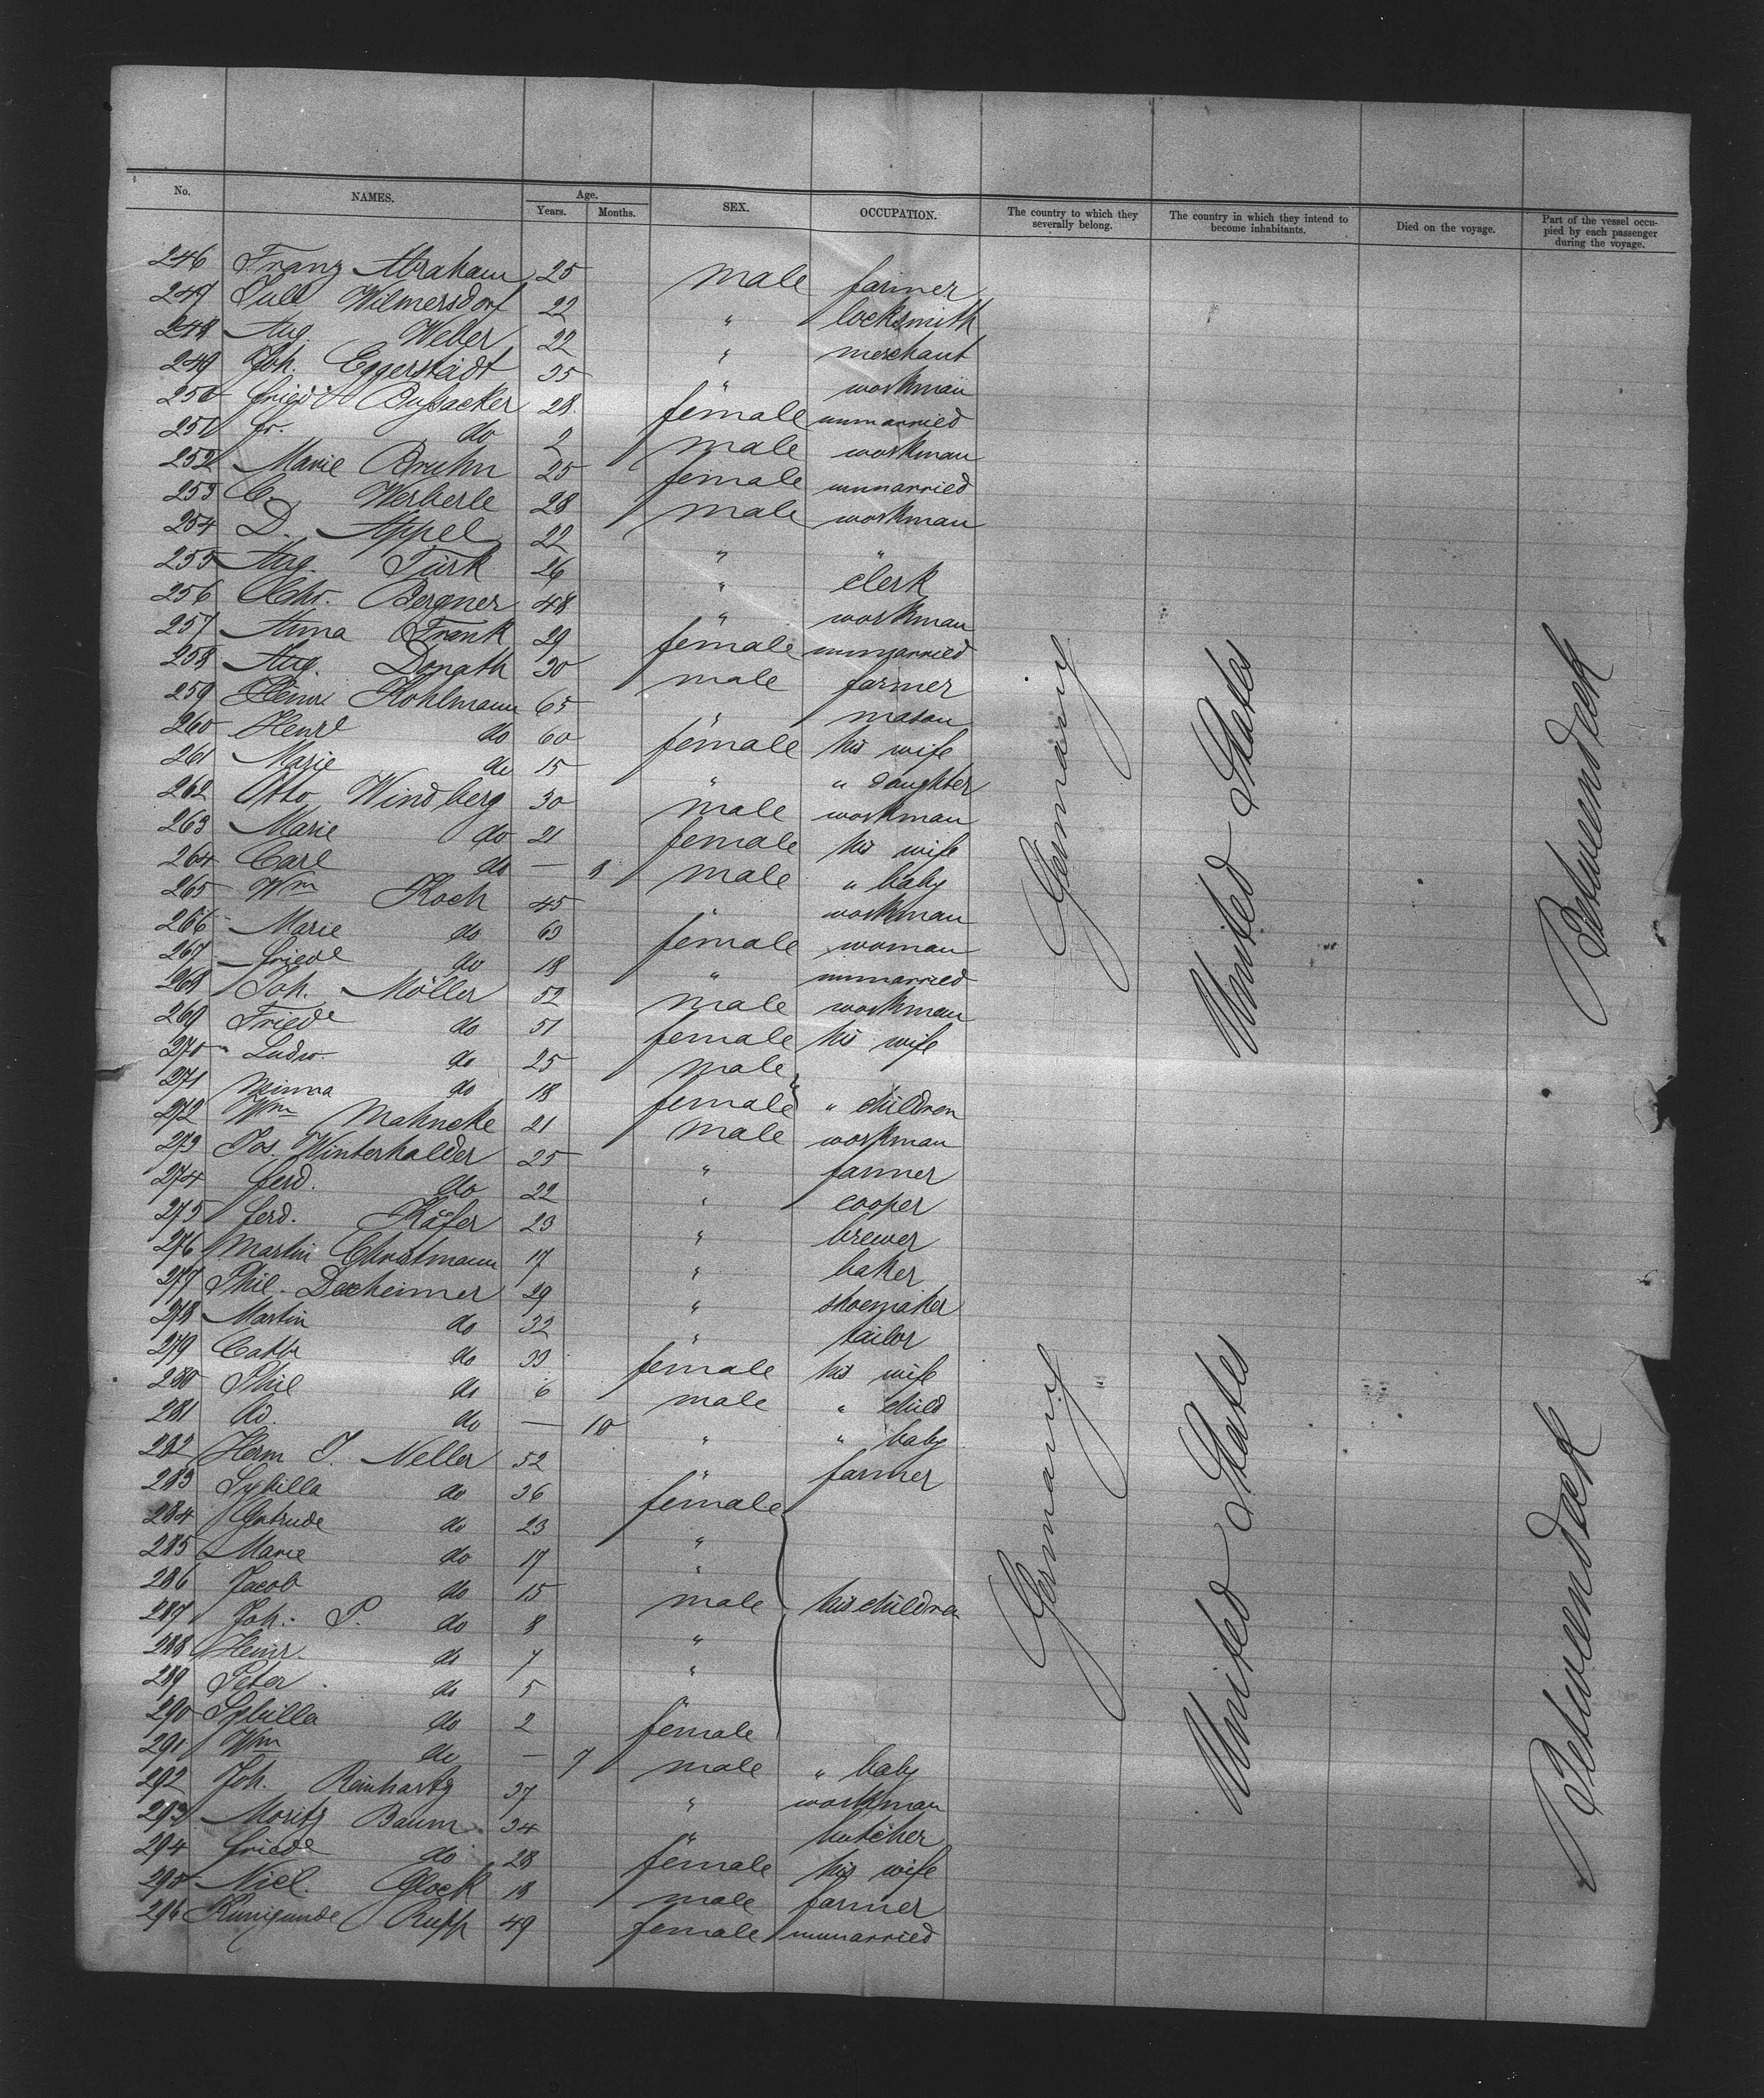 No. NAMES. Age. Years. Months. SEX. OCCUPATION. The country to which they severally belong. The country in which they intend to become inhabitants. Died on the voyage. Part of the vessel occupied by each passenger during the voyage.
246 Franz Abraham 25 male farmer
247 Jull Wilmersdorf 22 " locksmith
248 Aug. Weber 22 " merchant
249 Joh. Eggerstädt 35 " workman
250 Bussacker 28 female unmarried
251 Fr. do 2 male workman
252 Marie Bruhn 25 female unmarried
253 C. Werberle 28 male workman
254 D. Appel 22 " "
255 Aug. Türk 26 " clerk
256 Chr. Bergner 48 " workman
257 Anna Frank 29 female unmarried
258 Aug. Donath 30 male farmer
259 Heinr Kohlmann 65 " mason
260 Henre do 60 female his wife
261 Marie do 15 " " daughter
262 Otto Windberg 30 male workman
263 Marie do 21 female his wife
264 Carl do — 8 male " baby
265 Wm Koch 45 " workman
266 Marie do 63 female woman
267 Friede do 18 " unmarried
268 Joh. Möller 52 male workman
269 Friede do 51 female his wife
270 Ludw. do 25 male
271 Minna do 18 female " children
272 Wm Mahncke 21 male workman
273 Jos. Winterhalder 25 " farmer
274 Ferd. do 22 " cooper
275 Ferd. Käfer 23 " brewer
276 Martin Christmann 17 " baker
277 Phil. Dexheimer 29 " shoemaker
278 Martin do 32 " tailor
279 Cathr do 33 female his wife
280 Phil do 6 male " child
281 Ad. do — 10 " " baby
282 Herm J. Neller 52 " farmer
283 Sybilla do 36 female
284 Gertrude do 23 "
285 Marie do 17 "
286 Jacob do 15 male his children
287 Joh. P. do 8 "
288 Heinr. do 7 "
289 Peter do 5 "
290 Sybilla do 2 female
291 Wm do — 7 male " baby
292 Joh. Reinhartz 37 " workman
293 Moritz Baum 34 " butcher
294 Friede do 28 female his wife
295 Nicl. Glock 18 male farmer
296 Kunigunde Rupp 49 female unmarried
Germany
United States
Betweendeck
Germany
United States
Betweendeck